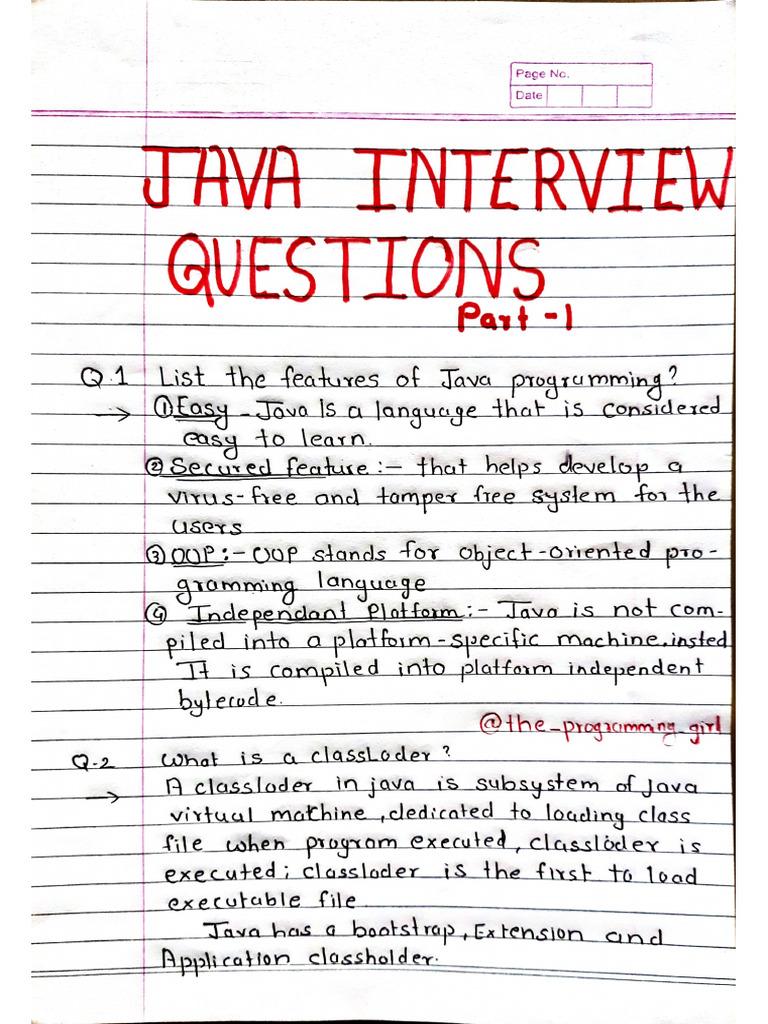 Page No.
Date
JAVA INTERVIEW
QUESTIONS
Part -1
Q.1 List the features of Java programming?
→ ① Easy - Java Is a language that is considered
easy to learn.
② Secured feature :- that helps develop a
virus-free and tamper free system for the
users
③ OOP :- OOP stands for object-oriented pro-
gramming language
④ Independant Platform :- Java is not com-
piled into a platform-specific machine, insted
It is compiled into platform independent
bytecode.
@the_programming_girl
Q.2 What is a classLoder?
→ A classloder in java is subsystem of Java
virtual matchine, dedicated to loading class
file when program executed, classloder is
executed; classloder is the first to load
executable file.
Java has a bootstrap, Extension and
Application classholder.